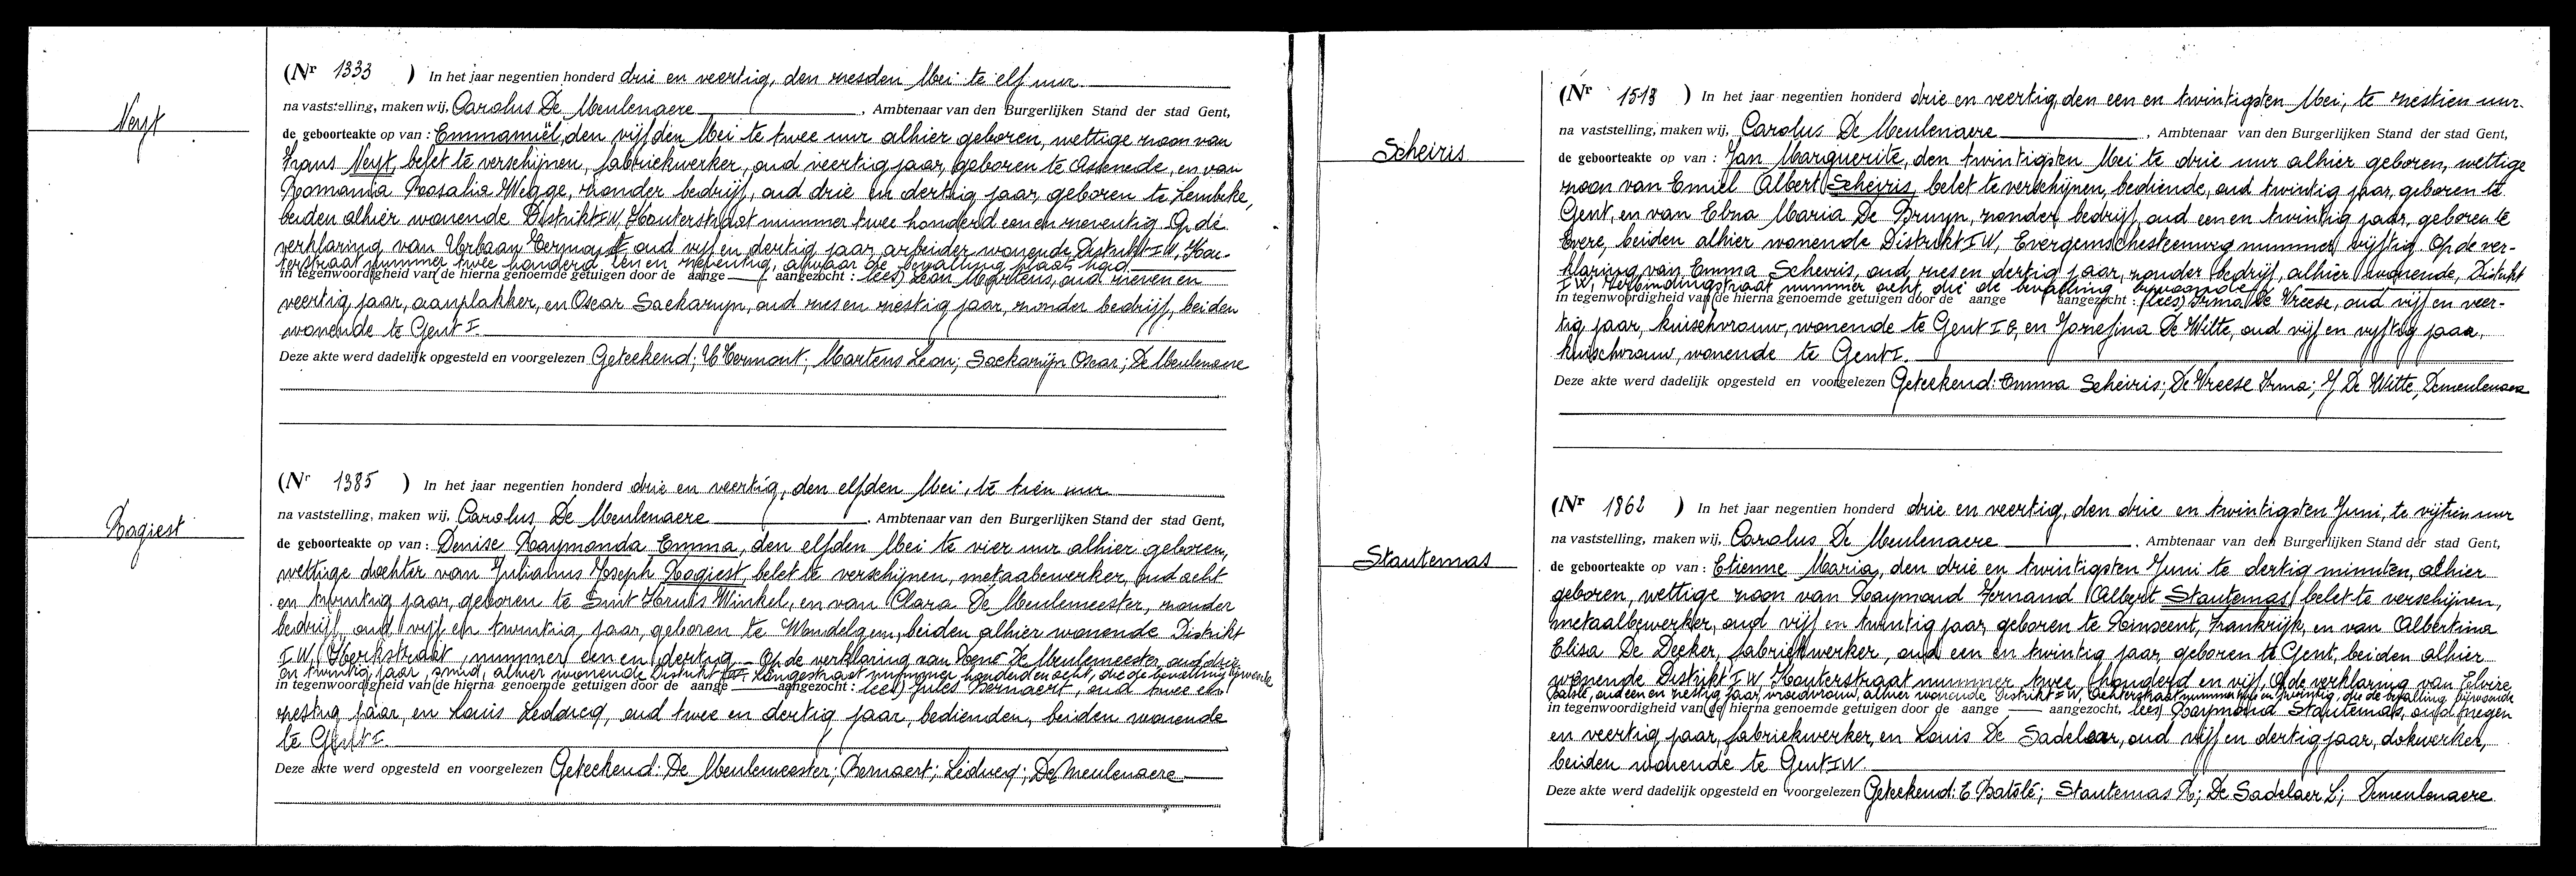 Neyt
(Nr 1333 ) In het jaar negentien honderd drie en veertig, den zesden Mei te elf uur
na vaststelling, maken wij, Carolus De Meulenaere, Ambtenaar van den Burgerlijken Stand der stad Gent,
de geboorteakte op van : Emmanuël, den vijfden Mei te twee uur alhier geboren, wettige zoon van
Frans Neyt, belet te verschijnen, fabriekwerker, oud veertig jaar, geboren te Assenede, en van
Romania Rosalia Wegge, zonder bedrijf, oud drie en dertig jaar, geboren te Lembeke,
beiden alhier wonende Distrikt I W, Houterstraat nummer twee honderd een en zeventig. Op de
verklaring van Urbaan Hermont, oud vijf en dertig jaar, arbeider wonende Distrikt I W, Hou-
terstraat nummer twee honderd een en zeventig, alwaar de bevalling plaats had.
in tegenwoordigheid van de hierna genoemde getuigen door de aange aangezocht : (lees) Leon Martens, oud zeven en
veertig jaar, aanplakker, en Oscar Saekaryn, oud zes en zestig jaar, zonder bedrijf, beiden
wonende te Gent I.
Deze akte werd dadelijk opgesteld en voorgelezen Geteekend; U Hermont; Martens Leon; Saekarijn Oscar; De Meulenaere
Rogiest
(Nr 1385 ) In het jaar negentien honderd drie en veertig, den elfden Mei, te tien uur
na vaststelling, maken wij, Carolus De Meulenaere, Ambtenaar van den Burgerlijken Stand der stad Gent,
de geboorteakte op van : Denise Raymonda Emma, den elfden Mei te vier uur alhier geboren,
wettige dochter van Julianus Joseph Rogiest, belet te verschijnen, metaalbewerker, oud acht
en twintig jaar, geboren te Sint Kruis Winkel, en van Clara De Meulemeester, zonder
bedrijf, oud vijf en twintig jaar, geboren te Wondelgem, beiden alhier wonende Distrikt
I W, nummer een en dertig - Op de verklaring van René De Meulemeester, oud drie
en twintig jaar, smid, alhier wonende Distrikt Langestraat nummer honderd en acht, die de bevalling bijwoonde
in tegenwoordigheid van de hierna genoemde getuigen door de aange aangezocht : (lees) Jules Bernaert, oud twee en
zestig jaar, en Louis Leducq, oud twee en dertig jaar, bedienden, beiden wonende
te Gent I.
Deze akte werd opgesteld en voorgelezen Geteekend: De Meulemeester; Bernaert; Leducq; De Meulenaere
Scheiris
(Nr 1513 ) In het jaar negentien honderd drie en veertig, den een en twintigsten Mei, te zestien uur.
na vaststelling, maken wij, Carolus De Meulenaere, Ambtenaar van den Burgerlijken Stand der stad Gent,
de geboorteakte op van : Jan Marguerite, den twintigsten Mei te drie uur alhier geboren, wettige
zoon van Emiel Albert Scheiris, belet te verschijnen, bediende, oud twintig jaar, geboren te
Gent, en van Elna Maria De Bruyn, zonder bedrijf, oud een en twintig jaar, geboren te
Evere, beiden alhier wonende Distrikt I W, Evergemschesteenweg nummer vijftig. Op de ver-
klaring van Emma Scheiris, oud zes en dertig jaar, zonder bedrijf, alhier wonende, Distrikt
I W, Verbindingstraat nummer acht die de bevalling bijwoonde
in tegenwoordigheid van de hierna genoemde getuigen door de aange aangezocht : (lees) Irma De Vreese, oud vijf en veer-
tig jaar, kuischvrouw, wonende te Gent I B, en Josefina De Witte, oud vijf en vijftig jaar,
kuischvrouw, wonende te Gent I.
Deze akte werd dadelijk opgesteld en voorgelezen Geteekend: Emma Scheiris; De Vreese Irma; J De Witte, Demeulenaere
Stautemas
(Nr 1862 ) In het jaar negentien honderd drie en veertig, den drie en twintigsten Juni, te vijftien uur
na vaststelling, maken wij, Carolus De Meulenaere, Ambtenaar van den Burgerlijken Stand der stad Gent,
de geboorteakte op van : Etienne Maria, den drie en twintigsten Juni te dertig minuten, alhier
geboren, wettige zoon van Raymond Fernand Albert Stautemas, belet te verschijnen,
metaalbewerker, oud vijf en twintig jaar, geboren te Rinscent, Frankrijk, en van Albertina
Elisa De Decker, fabriekwerker, oud een en twintig jaar, geboren te Gent, beiden alhier
wonende Distrikt I W Houterstraat nummer twee honderd en vijf. Op de verklaring van Elvire
Batslé, oud een en zestig jaar, vroedvrouw, alhier wonende Distrikt I W, die de bevalling bijwoonde
in tegenwoordigheid van de hierna genoemde getuigen door de aange aangezocht, (lees) Raymond Stautemas, oud negen
en veertig jaar, fabriekwerker, en Louis De Sadelaer, oud vijf en dertig jaar, dokwerker,
beiden wonende te Gent I W.
Deze akte werd dadelijk opgesteld en voorgelezen Geteekend: E Batslé; Stautemas R; De Sadelaer L; Demeulenaere